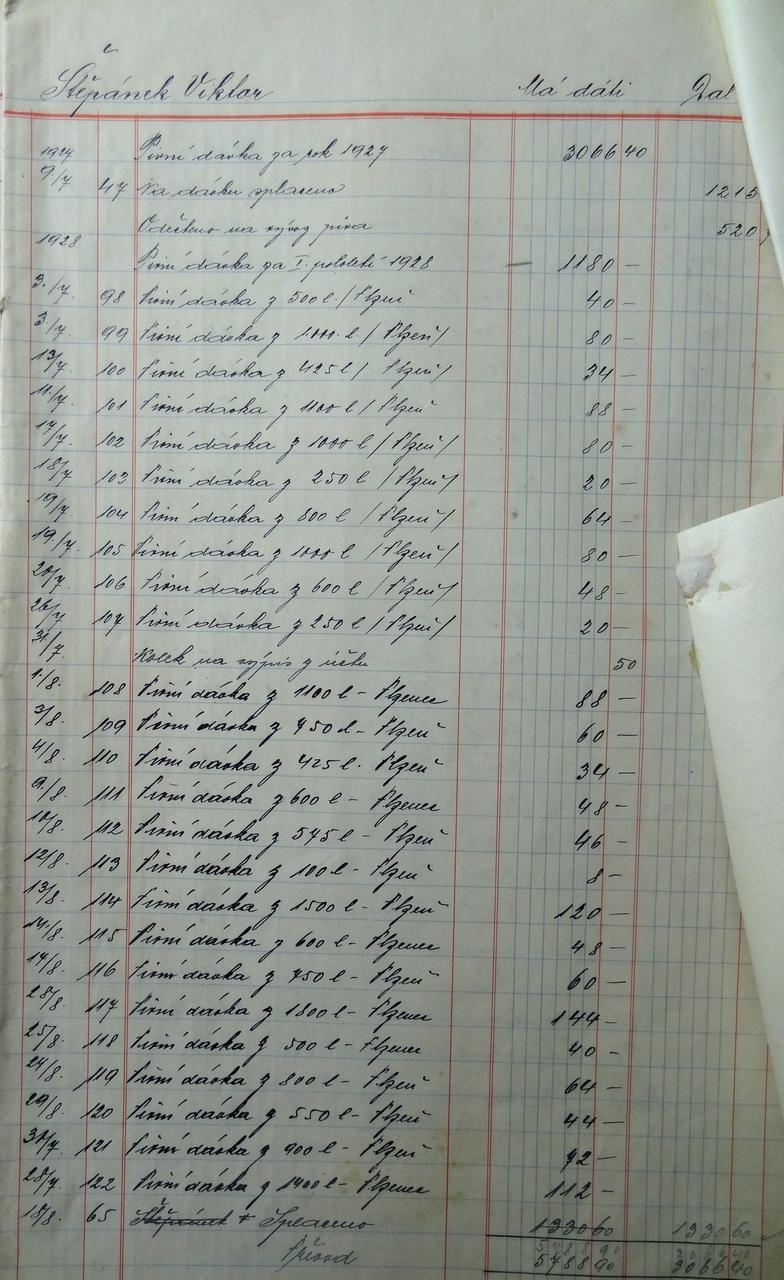 Štěpánek Viktor Má dáti Dal
1927 Pivní dávka za rok 1927 3066 40
9/7 47 Na dávku splaceno 1215
Odečteno na vývoz piva 520
1928
Pivní dávka za I. pololetí 1928 1180 —
3./7 98 Pivní dávka z 500 l / Plzeň 40 —
3/7 99 Pivní dávka z 1000 l / Plzeň / 80 —
13/7 100 Pivní dávka z 425 l / Plzeň / 34 —
11./7 101 Pivní dávka z 1100 l / Plzeň 88 —
17/7 102 Pivní dávka z 1000 l / Plzeň / 80 —
18/7 103 Pivní dávka z 250 l / Plzeň / 20 —
19/7 104 Pivní dávka z 800 l / Plzeň / 64 —
19./7 105 Pivní dávka z 1000 l / Plzeň / 80 —
20/7 106 Pivní dávka z 600 l / Plzeň / 48 —
26/7 107 Pivní dávka z 250 l / Plzeň / 20 —
31./7 Kolek na výpis z účtu 50
1./8. 108 Pivní dávka z 1100 l — Plzenec 88 —
3/8. 109 Pivní dávka z 750 l — Plzeň 60 —
4/8. 110 Pivní dávka z 425 l. Plzeň 34 —
9./8. 111 Pivní dávka z 600 l — Plzenec 48 —
10/8. 112 Pivní dávka z 575 l — Plzeň 46 —
12/8. 113 Pivní dávka z 100 l — Plzeň 8 —
13/8. 114 Pivní dávka z 1500 l — Plzeň 120 —
14./8. 115 Pivní dávka z 600 l — Plzenec 48 —
17/8. 116 Pivní dávka z 750 l — Plzeň 60 —
28/8. 117 Pivní dávka z 1800 l — Plzenec 144 —
25/8. 118 Pivní dávka z 500 l — Plzenec 40 —
24/8. 119 Pivní dávka z 800 l — Plzeň 64 —
29/8. 120 Pivní dávka z 550 l — Plzeň 44 —
31/7 121 Pivní dávka z 900 l — Plzeň 72 —
28/7 122 Pivní dávka z 1400 l — Plzenec 112 —
18/8. 65 Štěpánek Splaceno 1330 60 1330 60
Převod 5788 90 3066 40